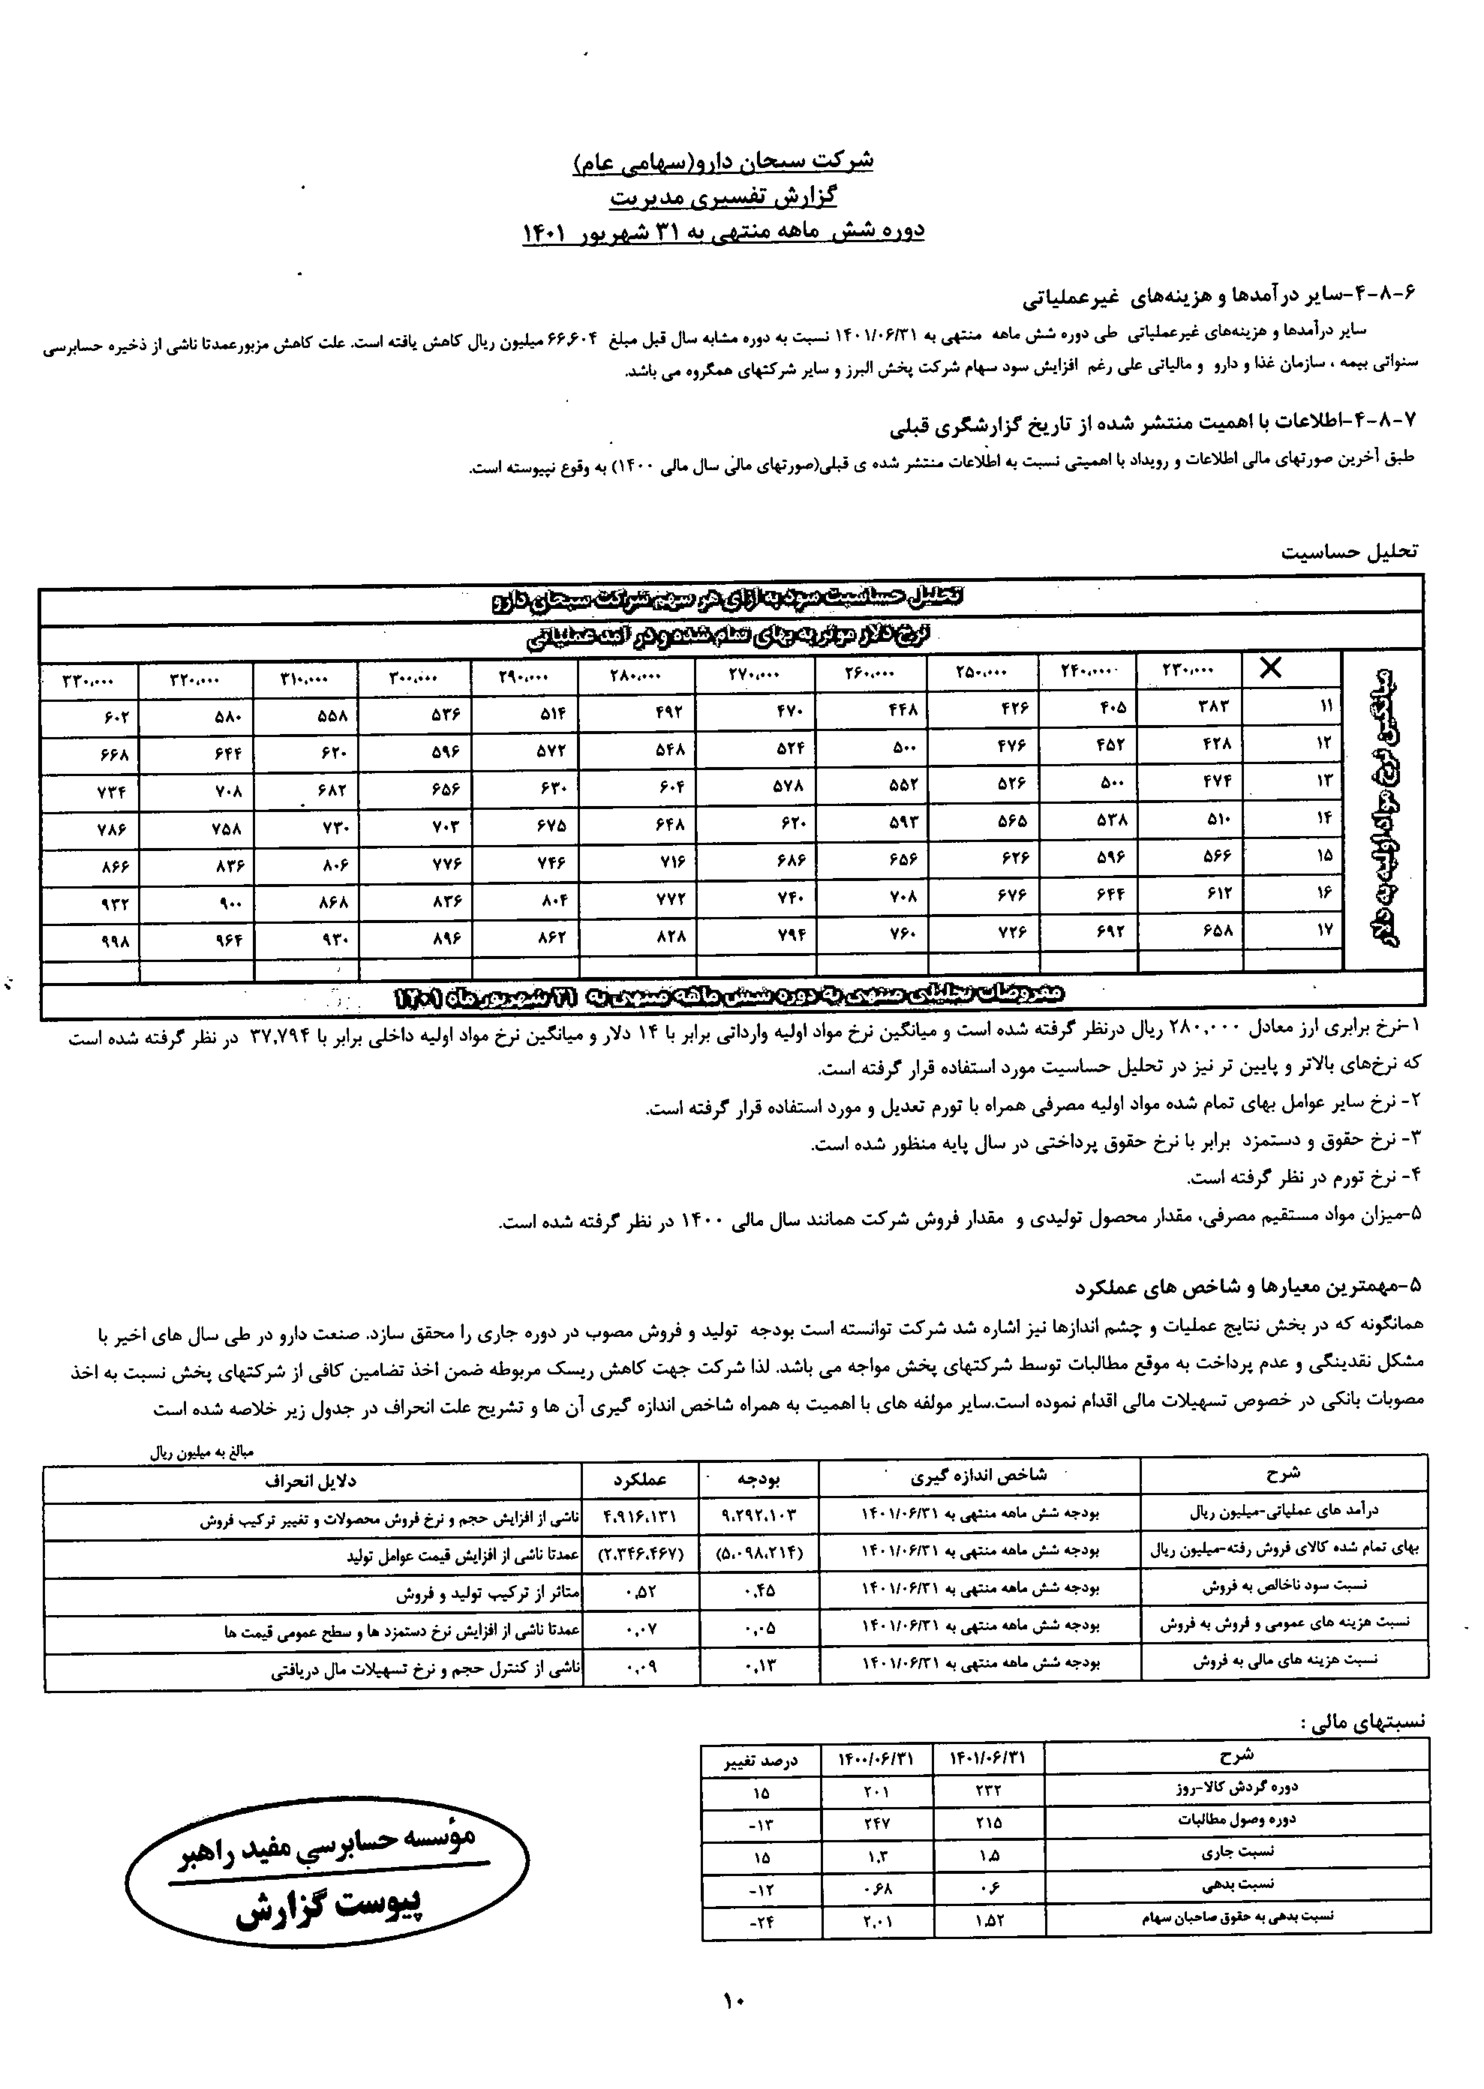 شرکت سبحان دارو(سهامی عام)
گزارش تفسیری مدیریت
دوره شش ماهه منتهی به ۳۱ شهریور ۱۴۰۱
۴-۸-۶-سایر درآمدها و هزینه‌های غیرعملیاتی
سایر درآمدها و هزینه‌های غیرعملیاتی طی دوره شش ماهه منتهی به ۱۴۰۱/۰۶/۳۱ نسبت به دوره مشابه سال قبل مبلغ ۶۶,۶۰۴ میلیون ریال کاهش یافته است. علت کاهش مزبورعمدتا ناشی از ذخیره حسابرسی
سنواتی بیمه ، سازمان غذا و دارو و مالیاتی علی رغم افزایش سود سهام شرکت پخش البرز و سایر شرکتهای همگروه می باشد.
۴-۸-۷-اطلاعات با اهمیت منتشر شده از تاریخ گزارشگری قبلی
طبق آخرین صورتهای مالی اطلاعات و رویداد با اهمیتی نسبت به اطلاعات منتشر شده ی قبلی(صورتهای مالی سال مالی ۱۴۰۰) به وقوع نپیوسته است.
تحلیل حساسیت
تحلیل حساسیت سود به ازای هر سهم شرکت سبحان دارو
نرخ دلار موثر به بهای تمام شده و درآمد عملیاتی
میانگین نرخ مواد اولیه به دلار
✕ ۲۳۰,۰۰۰ ۲۴۰,۰۰۰ ۲۵۰,۰۰۰ ۲۶۰,۰۰۰ ۲۷۰,۰۰۰ ۲۸۰,۰۰۰ ۲۹۰,۰۰۰ ۳۰۰,۰۰۰ ۳۱۰,۰۰۰ ۳۲۰,۰۰۰ ۳۳۰,۰۰۰
۱۱ ۳۸۳ ۴۰۵ ۴۲۶ ۴۴۸ ۴۷۰ ۴۹۲ ۵۱۴ ۵۳۶ ۵۵۸ ۵۸۰ ۶۰۲
۱۲ ۴۲۸ ۴۵۲ ۴۷۶ ۵۰۰ ۵۲۴ ۵۴۸ ۵۷۲ ۵۹۶ ۶۲۰ ۶۴۴ ۶۶۸
۱۳ ۴۷۴ ۵۰۰ ۵۲۶ ۵۵۲ ۵۷۸ ۶۰۴ ۶۳۰ ۶۵۶ ۶۸۲ ۷۰۸ ۷۳۴
۱۴ ۵۱۰ ۵۳۸ ۵۶۵ ۵۹۳ ۶۲۰ ۶۴۸ ۶۷۵ ۷۰۳ ۷۳۰ ۷۵۸ ۷۸۶
۱۵ ۵۶۶ ۵۹۶ ۶۲۶ ۶۵۶ ۶۸۶ ۷۱۶ ۷۴۶ ۷۷۶ ۸۰۶ ۸۳۶ ۸۶۶
۱۶ ۶۱۲ ۶۴۴ ۶۷۶ ۷۰۸ ۷۴۰ ۷۷۲ ۸۰۴ ۸۳۶ ۸۶۸ ۹۰۰ ۹۳۲
۱۷ ۶۵۸ ۶۹۲ ۷۲۶ ۷۶۰ ۷۹۴ ۸۲۸ ۸۶۲ ۸۹۶ ۹۳۰ ۹۶۴ ۹۹۸
مفروضات تحلیلی منتهی به دوره شش ماهه منتهی به ۳۱ شهریور ماه ۱۴۰۱
۱-نرخ برابری ارز معادل ۲۸۰,۰۰۰ ریال درنظر گرفته شده است و میانگین نرخ مواد اولیه وارداتی برابر با ۱۴ دلار و میانگین نرخ مواد اولیه داخلی برابر با ۳۷,۷۹۴ در نظر گرفته شده است
که نرخ‌های بالاتر و پایین تر نیز در تحلیل حساسیت مورد استفاده قرار گرفته است.
۲- نرخ سایر عوامل بهای تمام شده مواد اولیه مصرفی همراه با تورم تعدیل و مورد استفاده قرار گرفته است.
۳- نرخ حقوق و دستمزد برابر با نرخ حقوق پرداختی در سال پایه منظور شده است.
۴- نرخ تورم در نظر گرفته است.
۵-میزان مواد مستقیم مصرفی، مقدار محصول تولیدی و مقدار فروش شرکت همانند سال مالی ۱۴۰۰ در نظر گرفته شده است.
۵-مهمترین معیارها و شاخص های عملکرد
همانگونه که در بخش نتایج عملیات و چشم اندازها نیز اشاره شد شرکت توانسته است بودجه تولید و فروش مصوب در دوره جاری را محقق سازد. صنعت دارو در طی سال های اخیر با
مشکل نقدینگی و عدم پرداخت به موقع مطالبات توسط شرکتهای پخش مواجه می باشد. لذا شرکت جهت کاهش ریسک مربوطه ضمن اخذ تضامین کافی از شرکتهای پخش نسبت به اخذ
مصوبات بانکی در خصوص تسهیلات مالی اقدام نموده است.سایر مولفه های با اهمیت به همراه شاخص اندازه گیری آن ها و تشریح علت انحراف در جدول زیر خلاصه شده است
مبالغ به میلیون ریال
شرح شاخص اندازه گیری بودجه عملکرد دلایل انحراف
درآمد های عملیاتی-میلیون ریال بودجه شش ماهه منتهی به ۱۴۰۱/۰۶/۳۱ ۹,۲۹۲,۱۰۳ ۴,۹۱۶,۱۳۱ ناشی از افزایش حجم و نرخ فروش محصولات و تغییر ترکیب فروش
بهای تمام شده کالای فروش رفته-میلیون ریال بودجه شش ماهه منتهی به ۱۴۰۱/۰۶/۳۱ (۵,۰۹۸,۲۱۴) (۲,۳۴۶,۴۶۷) عمدتا ناشی از افزایش قیمت عوامل تولید
نسبت سود ناخالص به فروش بودجه شش ماهه منتهی به ۱۴۰۱/۰۶/۳۱ ۰,۴۵ ۰,۵۲ متاثر از ترکیب تولید و فروش
نسبت هزینه های عمومی و فروش به فروش بودجه شش ماهه منتهی به ۱۴۰۱/۰۶/۳۱ ۰,۰۵ ۰,۰۷ عمدتا ناشی از افزایش نرخ دستمزد ها و سطح عمومی قیمت ها
نسبت هزینه های مالی به فروش بودجه شش ماهه منتهی به ۱۴۰۱/۰۶/۳۱ ۰,۱۳ ۰,۰۹ ناشی از کنترل حجم و نرخ تسهیلات مال دریافتی
نسبتهای مالی :
شرح ۱۴۰۱/۰۶/۳۱ ۱۴۰۰/۰۶/۳۱ درصد تغییر
دوره گردش کالا-روز ۲۳۲ ۲۰۱ ۱۵
دوره وصول مطالبات ۲۱۵ ۲۴۷ -۱۳
نسبت جاری ۱,۵ ۱,۳ ۱۵
نسبت بدهی ۰,۶ ۰,۶۸ -۱۲
نسبت بدهی به حقوق صاحبان سهام ۱,۵۲ ۲,۰۱ -۲۴
مؤسسه حسابرسی مفید راهبر
پیوست گزارش
۱۰